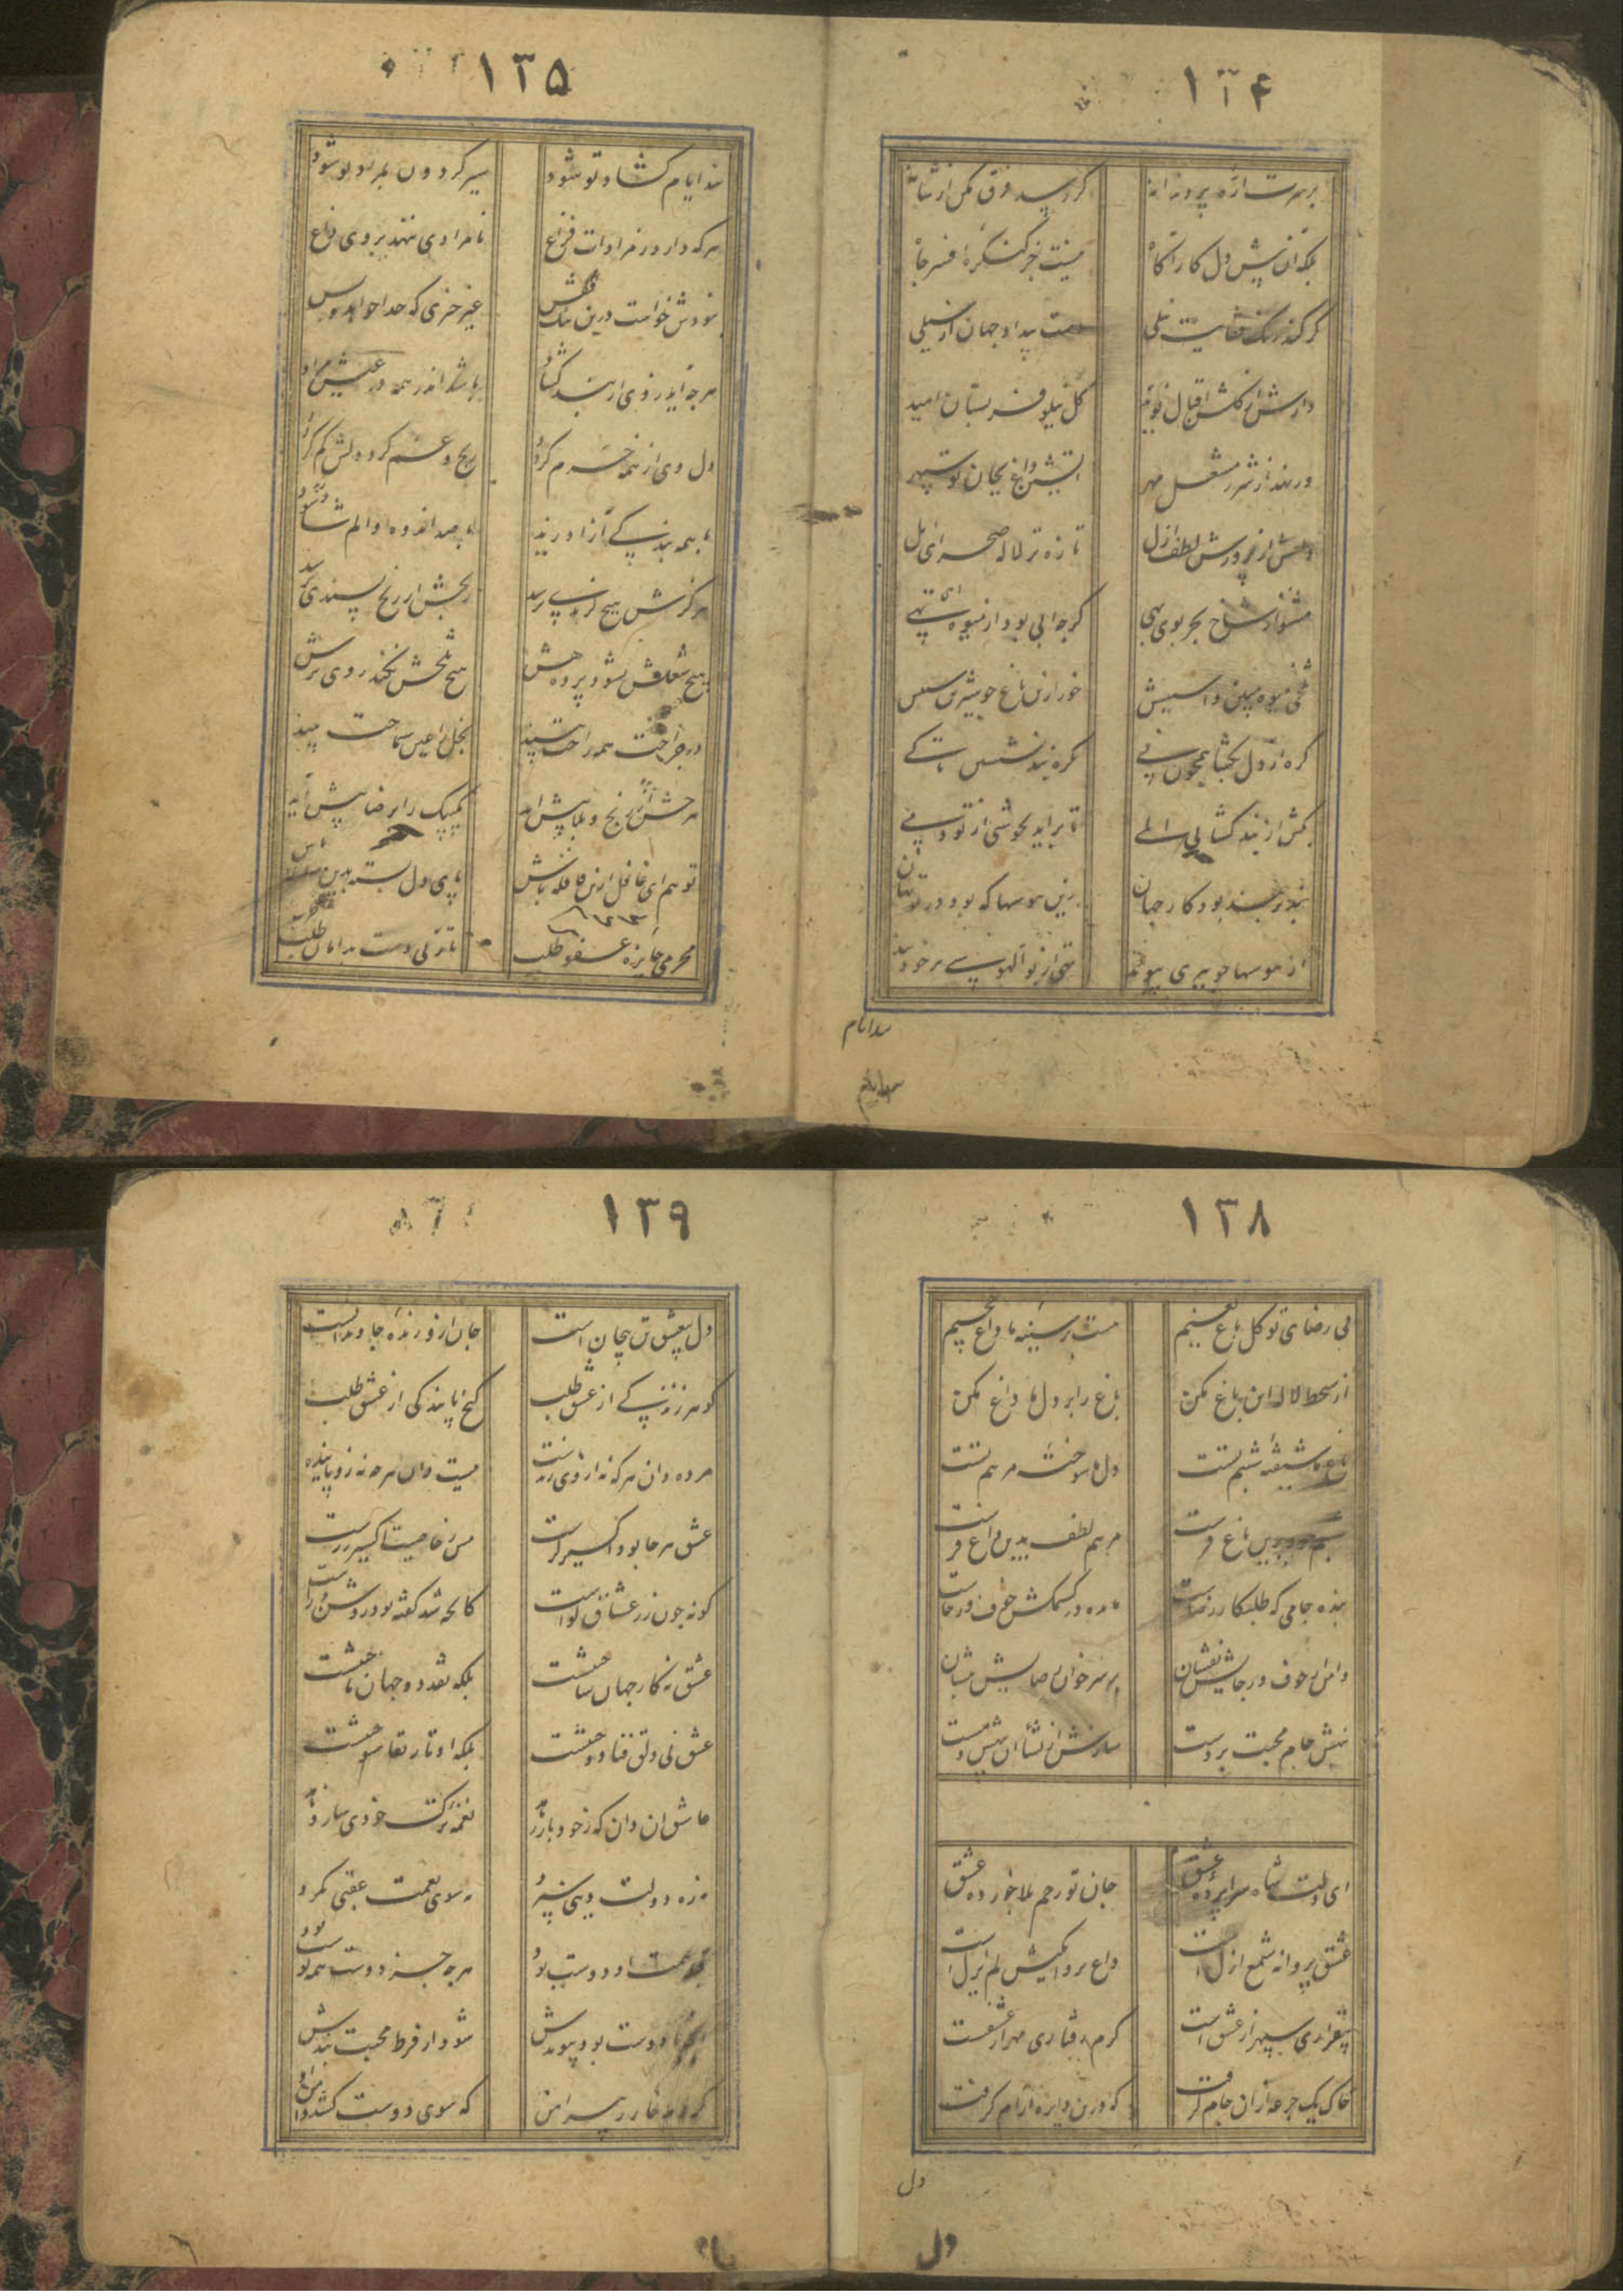 ۱۳۴
برسرت اره پرد ندانه
کرد سد فرق مکن از شانه
بلکه آن پیش دل کار آگاه
نیست جز کنگره افسر جاه
کر کند رنک نیلی
دست بیداد جهان از سیلی
دانش از کلشن اقبال نوید
کل نیلوفر بستان امید
ور نهد از شرر مشعل مهر
آتشین داغ بجان تو سپهر
از پرورش لطف ازل
تازه تر لاله صحرای امل
مشنو از شاخ بجز بوی بهی
کرچه آبی بود از میوه تهی
گره از دل بگشا همچون نی
گره بند نشینی تا کی
بکش از بند گشایی المی
تا براید بخوشی از تو دمی
بند بر بند بود کار جهان
زین هوسها که بود در تو نهان
از هوسها چو بری پیوند
نهی از بوالهوسی بر خود بند
بند ایام
۱۳۵
بند ایام گشاد تو شود
سیر گردون بمراد تو شود
هر که دارد ز مرادات فراغ
نامرادی ننهد بر وی داغ
نبودش خواست درین تنک قفس
غیر چیزی که خدا خواهد و بس
هر چه آید ز وی از بند و گشاد
باشد اندر همه در عیش مراد
دل وی از همه خرم گردد
رنج و غم گرد دلش کم گردد
با همه بندگی آزاد زید
با صد اندوه و الم شاد زید
هرگزش هیچ گزندی نرسد
رنجش از رنج پسندی نرسد
هیچ شغلش نشود پرده هش
هیچ تلخش نکند روی ترش
در جراحت همه راحت بیند
بخل را عین سماحت بیند
هر چش از رنج و بلا پیش آید
یک بیک را برضا پیش آید
تو هم ای غافل ازین قافله باش
پای دل بسته بدین سلسله باش
محرمی جایزه عفو طلب
تا زنی دست بدامان طلب
۱۳۸
بی رضای تو گل باغ نعیم
هست بر سینه ما داغ جحیم
از سخط لاله این باغ مکن
باغ را بر دل ما داغ مکن
باغ ما شیفته شبنم تست
دل ما سوخته مرهم تست
شبنم جود برین باغ فرست
مرهم لطف بدین داغ فرست
بنده جامی که طلبکار رضاست
مانده در کشمکش خوف و رجاست
دامن از خوف و رجایش بفشان
بر سر خوان رضایش بنشان
نهش جام محبت بر دست
سازش از نشأه آن بیهش و مست
ای دلت شاه سراپرده عشق
جان تو زخم بلا خورده عشق
عشق پروانه شمع ازل است
داغ پروانگیش لم یزل است
بیقراری سپهر از عشق است
گرم رفتاری مهر از عشقست
خاک یک جرعه ازان جام گرفت
که درین دایره آرام گرفت
دل
دل
۱۳۹
دل بی عشق تن بیجان است
جان ازو زنده جاویدانست
گوهر زندگی از عشق طلب
گنج پایندگی از عشق طلب
مرده دان هر که نه از وی زنده‌ست
نیست دان هر چه نه زو پاینده‌ست
عشق هر جا بود اکسیر گرست
مس ز خاصیت اکسیر زرست
گونه چون زر عشاق گواست
کانچه شد گفته بود روشن و راست
عشق نه کار جهان ساختنست
بلکه نقد دو جهان باختنست
عشق نی دلق فنا دوختنست
بلکه اوتار بقا سوختنست
عاشق آن دان که ز خود باز رهد
نغمه ترک خودی ساز دهد
نه ره دولت دنیی سپرد
نه سوی نعمت عقبی نگرد
قبله همت او دوست بود
هر چه جز دوست همه پوست بود
آنچه با دوست بود پیوندش
شود از فرط محبت بندش
گردد خار رهش پیراهن
که سوی دوست کشد دامن او